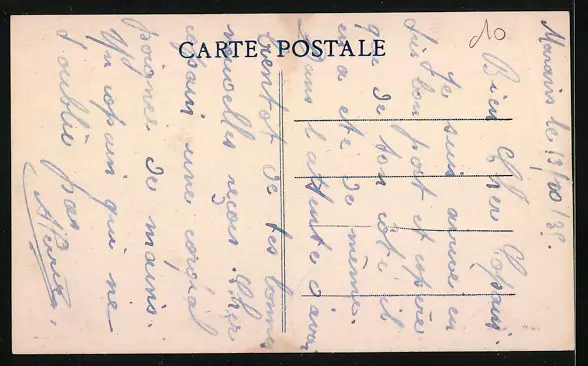 10
CARTE POSTALE
le 13/10/39.
Bien Cher Copain.
Je suis arrivé en
très bon port et espère
que de ton coté il
en a été de même.
Dans l'attente d'avoir
bientot de tes bonnes
nouvelles reçois Cher
copain une cordial
poignée de mains.
Un copain qui ne
t'oublie pas